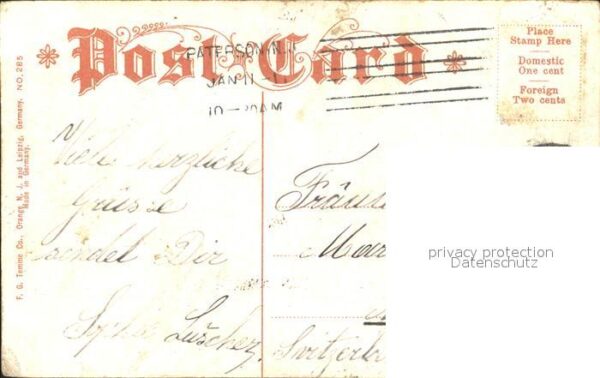 Post Card
PATERSON, N.J.
JAN 11
10-30AM
Place
Stamp Here
Domestic
One cent
Foreign
Two cents
F. G. Temme Co., Orange N. J. and Leipzig, Germany. NO. 285
Made in Germany.
Viele herzliche
Grüsse
sendet Dir
Fräu
Mar
Switzerla
privacy protection
Datenschutz